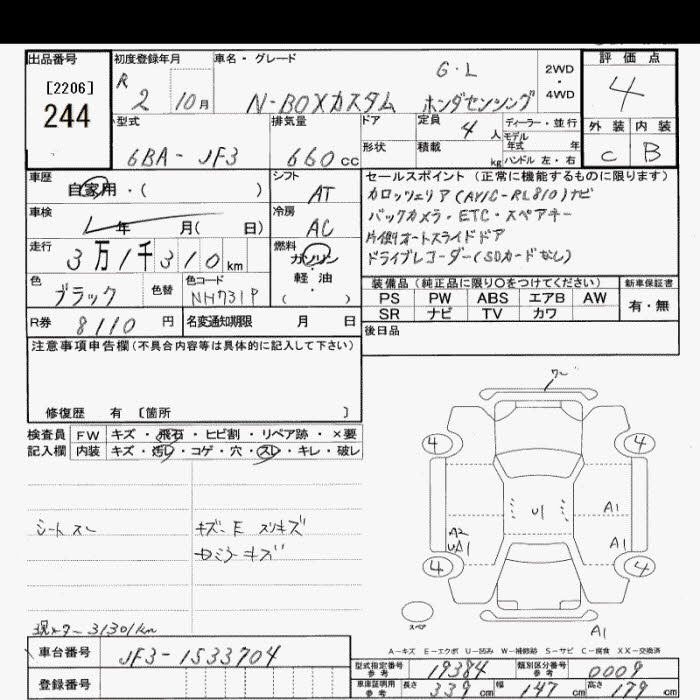 出品番号 初度登録年月 車名・グレード 評価点
[2206] R G・L 2WD
244 2 10月 N-BOXカスタム ホンダセンシング ・4WD 4
型式 排気量 ドア 定員 4人 ディーラー・並行 外装 内装
6BA-JF3 660cc 形状 積載 kg モデル年式 年 ハンドル 左・右 C B
車歴 自家用・( ) シフト AT セールスポイント(正常に機能するものに限ります)
車検 年 月( 日) 冷房 AC カロッツェリア(AVIC-RL810)ナビ
バックカメラ・ETC・スペアキー
走行 3万1千310km 燃料 ガソリン・軽油( ) 片側オートスライドドア
ドライブレコーダー(SDカードなし)
色 ブラック 色替 色コード NH731P 装備品(純正品に限り○をつけてください) 新車保証書
PS PW ABS エアB AW 有・無
SR ナビ TV カワ
R券 8110円 名変通知期限 月 日 後日品
注意事項申告欄(不具合内容等は具体的に記入して下さい)
修復歴 有 〔箇所 〕
検査員 FW キズ・飛石・ヒビ割・リペア跡・×要
記入欄 内装 キズ・汚レ・コゲ・穴・スレ・キレ・破レ
4 4
シートスレ キズ-E スリキズ U1 A1
A2
UA1 A1
4 4
スペア
A1
A-キズ E-エクボ U-凹み W-補修跡 S-サビ C-腐食 XX-交換済
車台番号 JF3-1533704 型式指定番号 参考 19384 類別区分番号 参考 0009
登録番号 車庫証明用 参考 長さ 339cm 幅 147cm 高さ 179cm